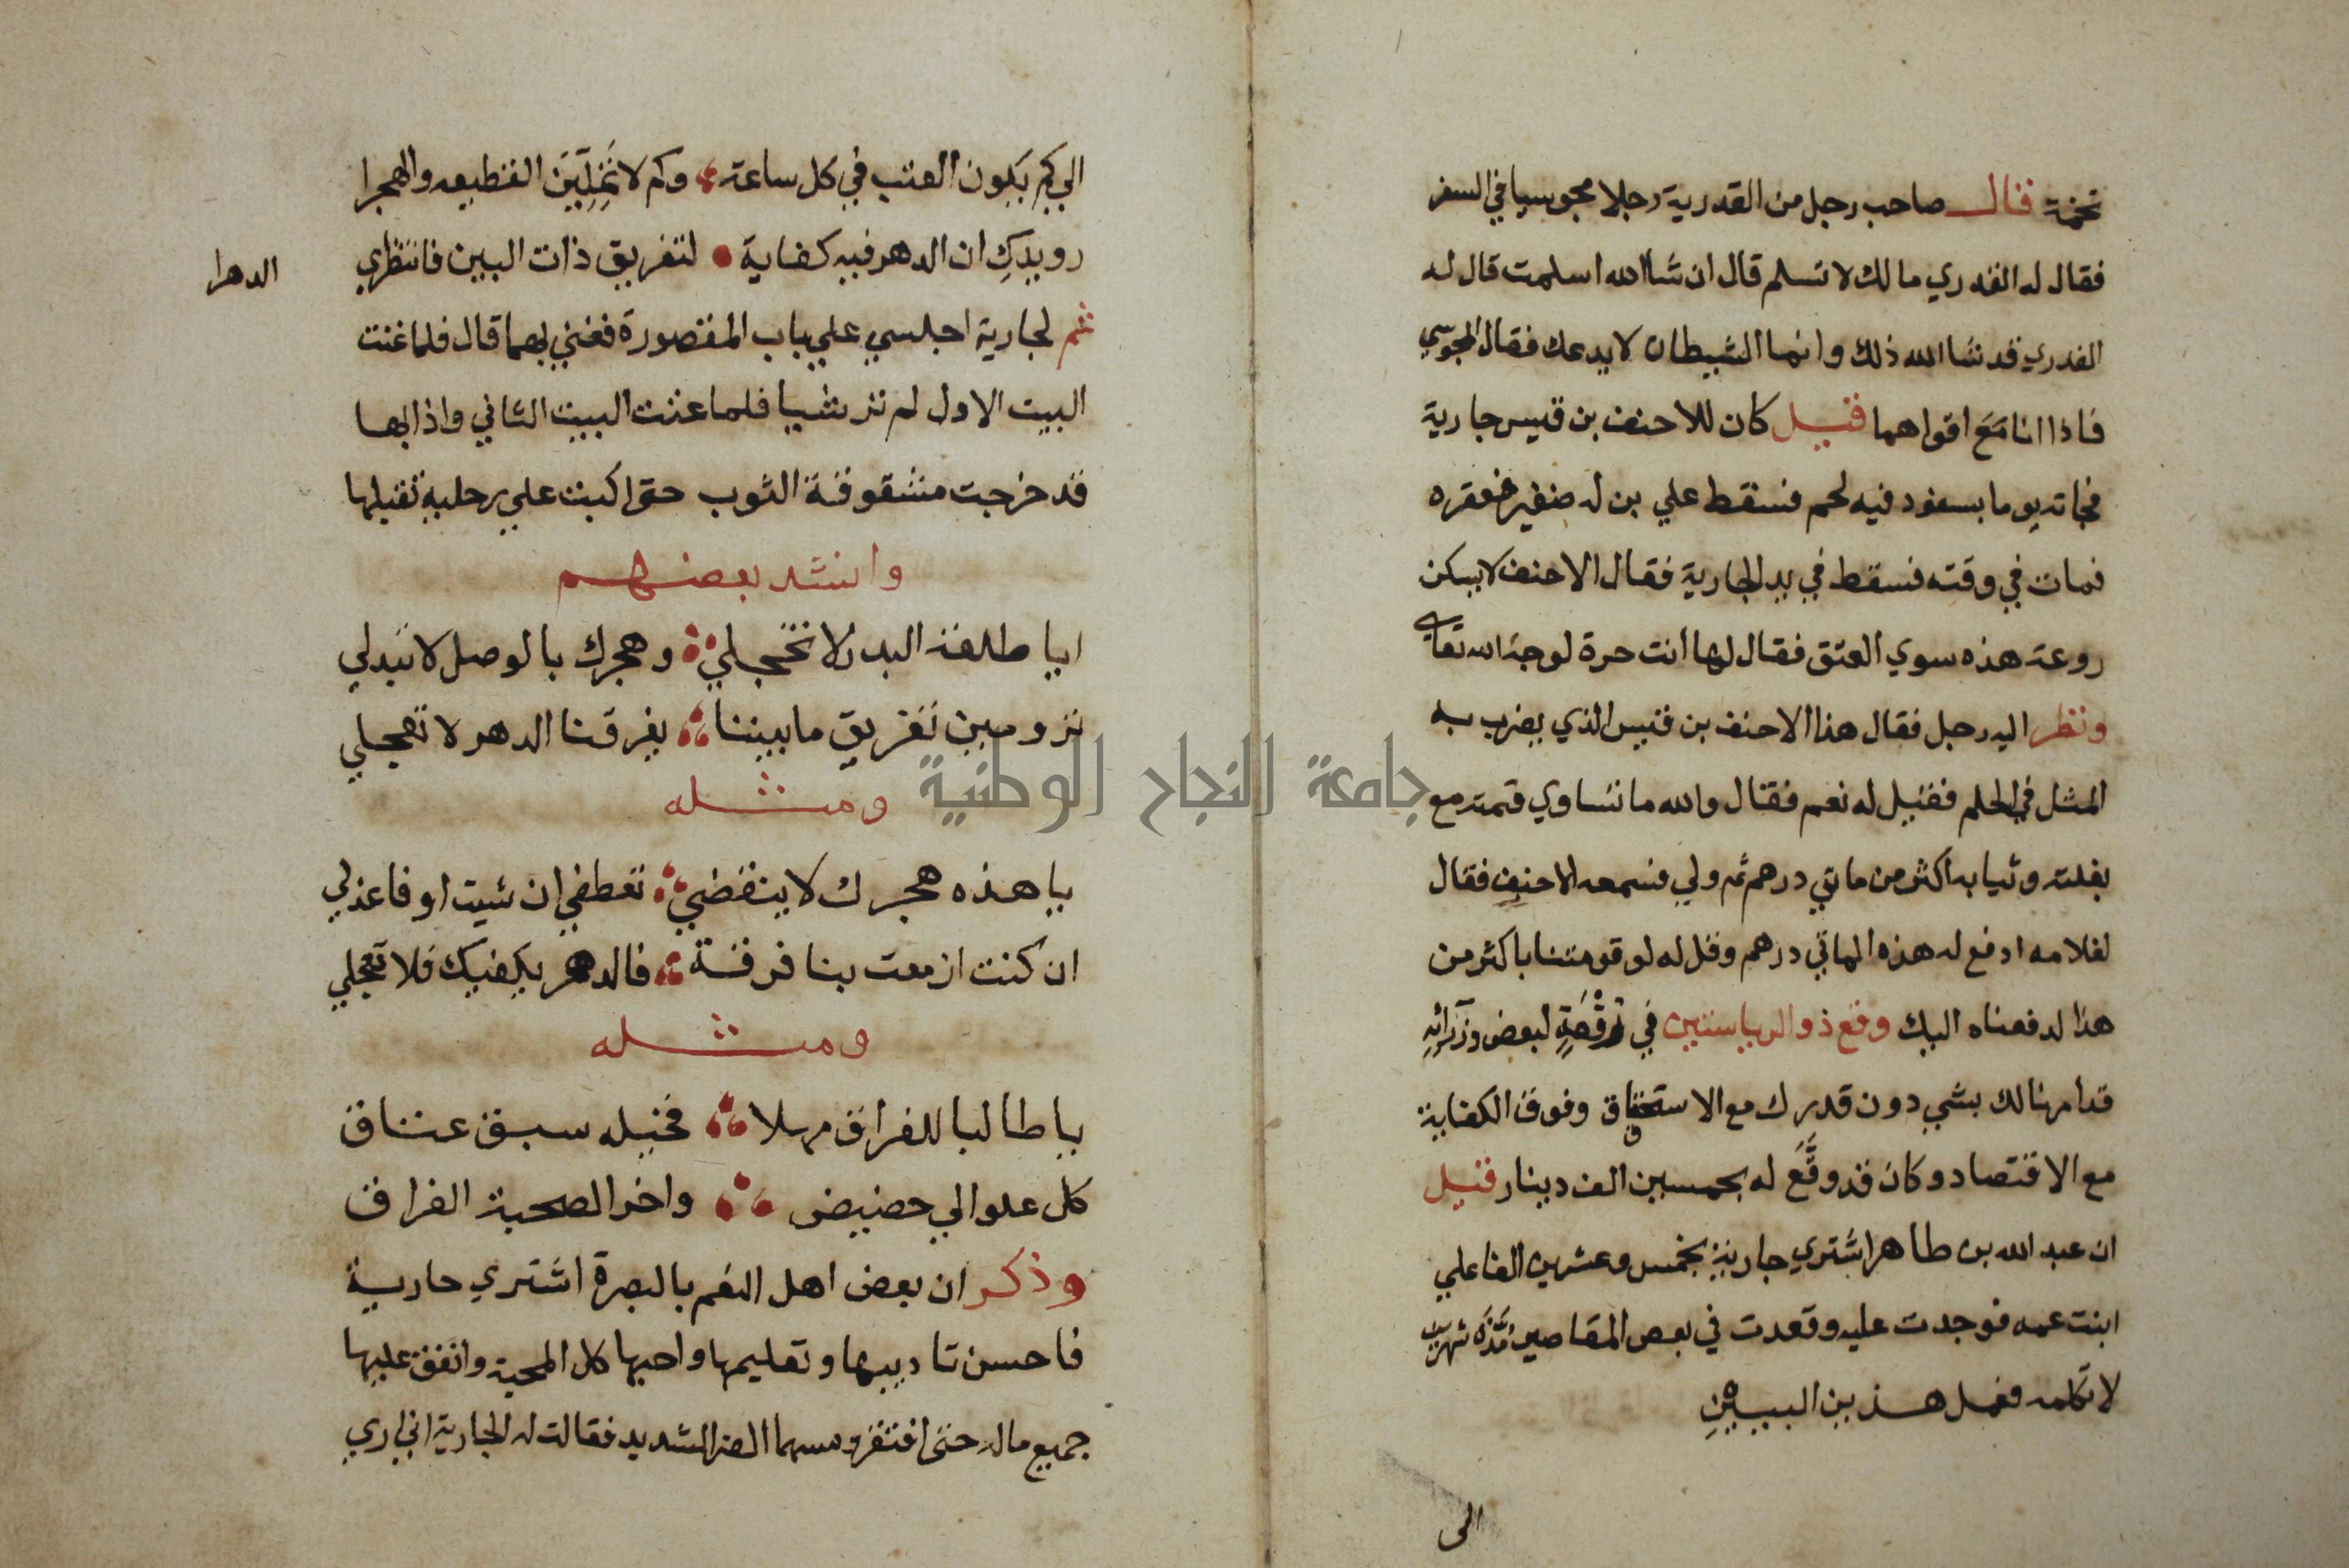 تخمة فقال صاحب رجل من القدرية رجلا مجوسيا في السفر
فقال له القدري مالك لا تسلم قال ان شا الله اسلمت قال له
القدري قد شا الله ذلك وانما الشيطان لا يدعك فقال المجوسي
فاذا انا مَعَ اقواهما قيل كان للاحنف بن قيس جارية
فجاته يوما بسفود فيه لحم فسقط علي بن له صغير فعقره
فمات في وقته فسقط في يد الجارية فقال الاحنف لا يسكن
روعة هذه سوي العتق فقال لها انت حرة لوجه الله تعالي
ونظر اليه رجل فقال هذا الاحنف بن قيس الذي يضرب به
المثل في الحلم فقيل له نعم فقال والله ما تساوي قمته مع
بغلته وثيابه اكثر من ماتي درهم ثم ولي فسمعه الاحنف فقال
لغلامه ادفع له هذه الماتي درهم وقل له لو قومتنا باكثر من
هذا لدفعناه اليك وقع ذو الرياستين في رُقْعَةٍ لبعض وزرائهِ
قد امرنا لك بشي دون قدرك مع الاستحقاق وفوق الكفاية
مع الاقتصاد وكان قد وقَّعَ له بخمسين الف دينار قيل
ان عبد الله بن طاهر اشتري جارية بخمس وعشرين الفا علي
ابنت عمه فوجدت عليه وقعدت في بعض المقاصير مُدَّة شهرين
لا تكلمه فعمل هذين البيتينِ
الي
الي كم يكون العتب في كل ساعة وكم لا تَمَلِّينَ القطيعه والهجرا
رويدكِ ان الدهر فيه كفاية لتفريق ذات البين فانتظري
الدهرا
ثم لجارية اجلسي علي باب المقصورة فغني بهما قال فلما غنت
البيت الاول لم تر شيا فلما غنت البيت الثاني واذا بها
قد خرجت مشقوقة الثوب حتى اكبت علي رجليه تقبلها
وانشد بعضهم
ايا طلعة البدر لا تخجلي وهجرك بالوصل لا تبدلي
ترومين تفريق ما بيننا يفرقنا الدهر لا تعجلي
ومثله
يا هذه هجرك لا ينقضي تعطفي ان شيت او فاعذلي
ان كنت ازمعت بنا فرقة فالدهر يكفيك فلا تعجلي
ومثله
يا طالبا للفراق مهلا فخيله سبق عتاق
كل علو الي حضيض واخر الصحبة الفراق
وذكر ان بعض اهل النعم بالبصرة اشتري جارية
فاحسن تاديبها وتعليمها واحبها كل المحبة وانفق عليها
جميع ماله حتى افتقر ومسهما الضر الشديد فقالت له الجارية اني اري
جامعة النجاح الوطنية